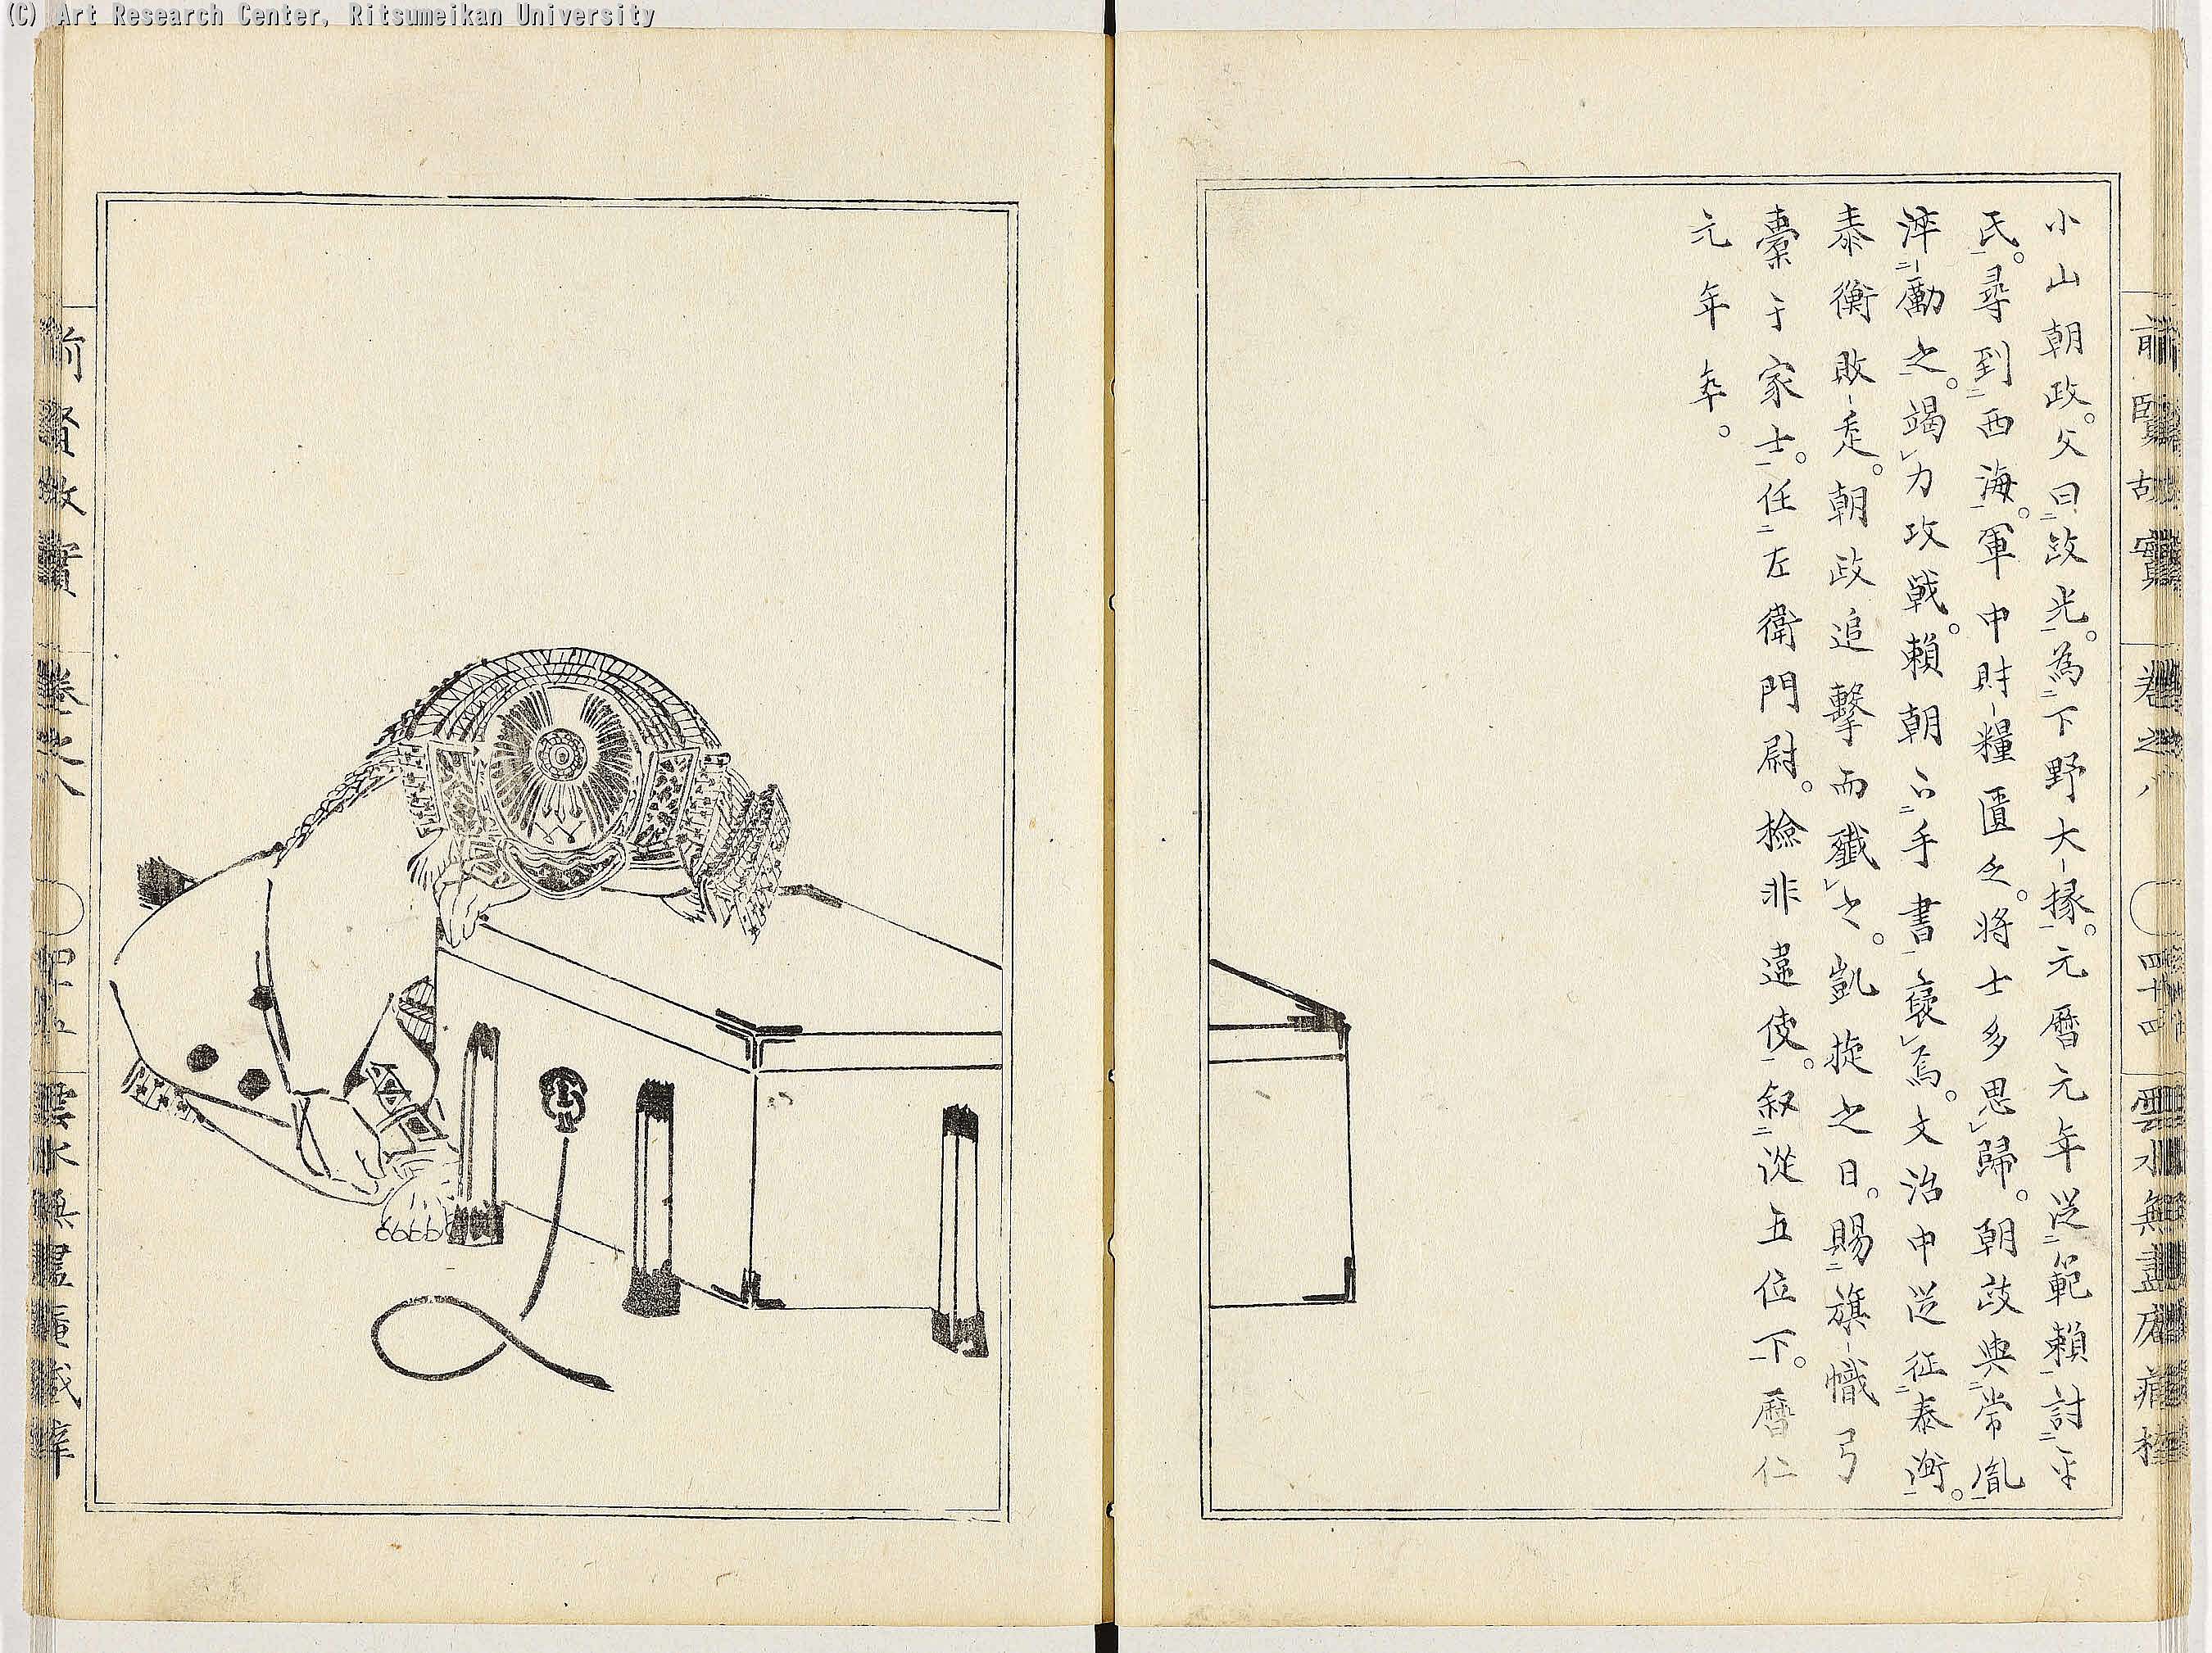 (C) Art Research Center, Ritsumeikan University
前賢故實 卷之八 四十四 雲水無盡庵藏梓
小山朝政。父曰政光。為下野大掾。元曆元年從範賴討平
氏。尋到西海。軍中財糧匱乏。將士多思歸。朝政與常胤
淬勵之。竭力攻戰。賴朝以手書褒焉。文治中從征泰衡。
泰衡敗走。朝政追擊而殲之。凱旋之日。賜旗幟弓
櫜于家士。任左衛門尉。檢非違使。敘從五位下。曆仁
元年卒。
前賢故實 卷之八 四十五 雲水無盡庵藏梓